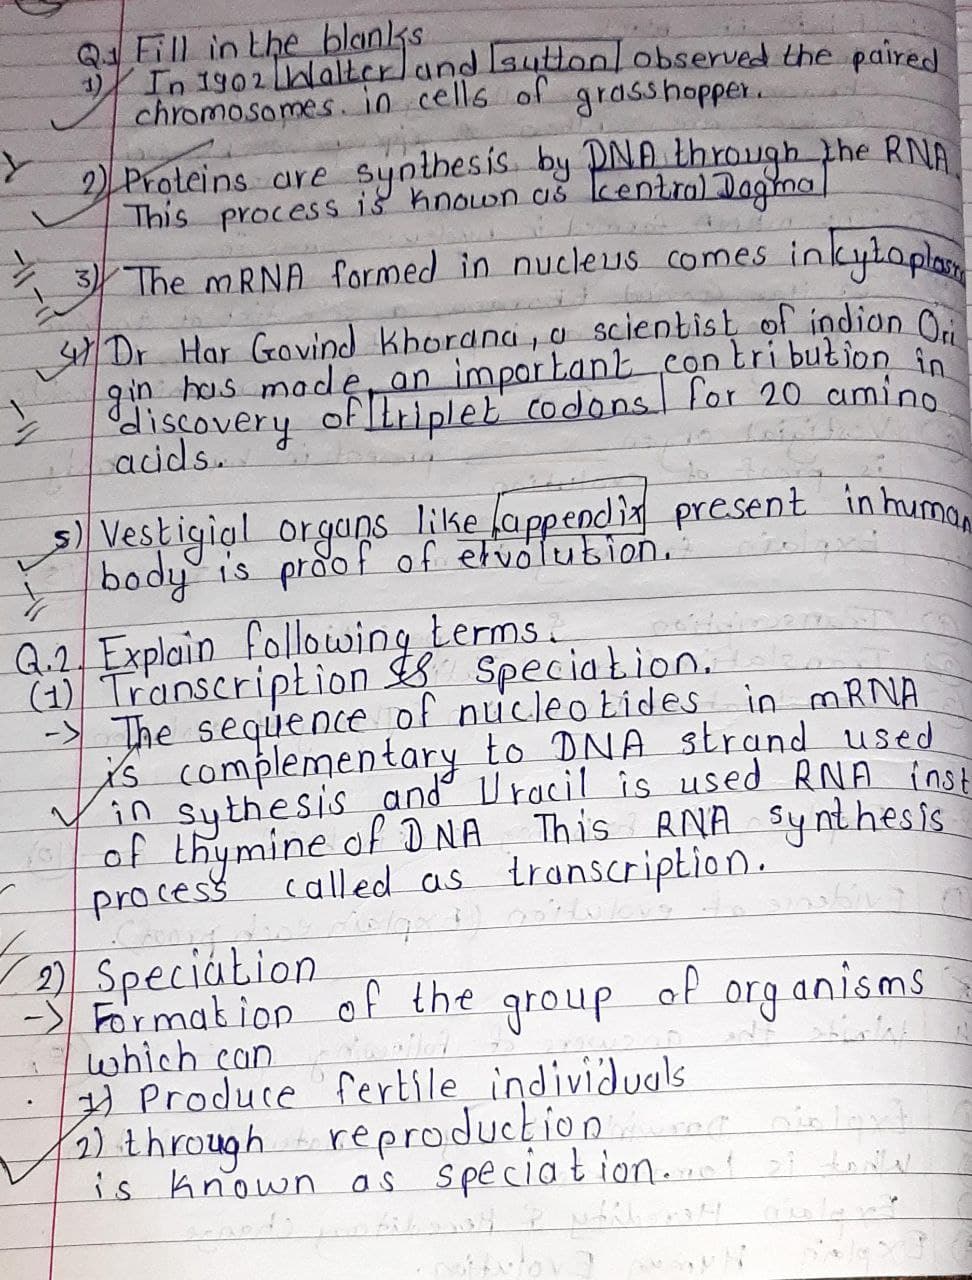 Q.1 Fill in the blanks
1) In 1902 Walter and sutton observed the paired
chromosomes. in cells of grasshopper.
2) Proteins are synthesis by DNA through the RNA.
This process is known as central Dogma
3) The mRNA formed in nucleus comes in kytoplasm
4) Dr Har Govind Khorana, a scientist of indian Ori
gin has made an important contribution in
discovery of triplet codons for 20 amino
acids.
5) Vestigial organs like appendix present in human
body is proof of evolution.
Q.2 Explain following terms.
(1) Transcription & speciation.
-> The sequence of nucleotides in mRNA
is complementary to DNA strand used
in sythesis and Uracil is used RNA inst
of thymine of DNA This RNA synthesis
process called as transcription.
2) Speciation
-> Formation of the group of organisms
which can
1) Produce fertile individuals
2) through reproduction
is known as speciation.